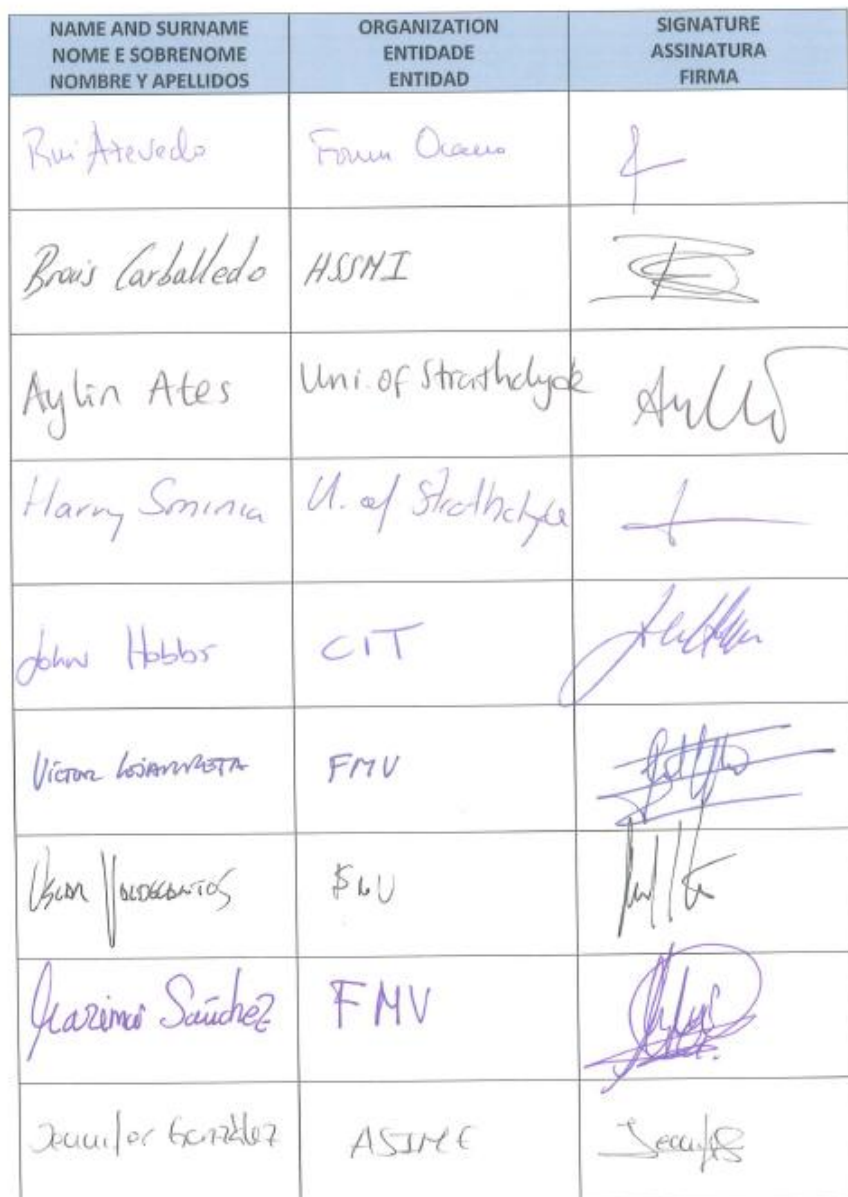 NAME AND SURNAME
NOME E SOBRENOME
NOMBRE Y APELLIDOS
ORGANIZATION
ENTIDADE
ENTIDAD
SIGNATURE
ASSINATURA
FIRMA
Rui Azevedo Forum Oceano
Brais Carballedo HSSMI
Aylin Ates Uni. of Strathclyde
Harry Sminia U. of Strathclyde
John Hobbs CIT
Víctor FMV
Oscar Valdecantos
Sánchez FMV
Jennifer González ASIME